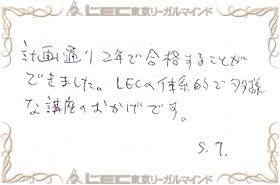 LEC東京リーガルマインド
計画通り2年で合格することが
できました。LECの体系的で多様
な講座のおかげです。
S.T.
LEC東京リーガルマインド